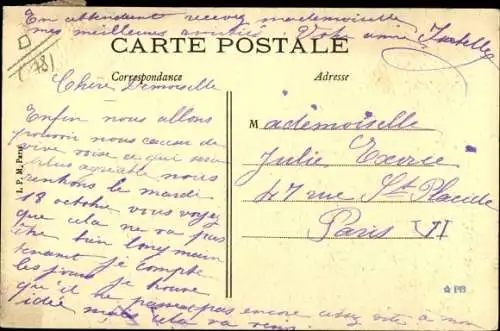 En attendant recevez mademoiselle
mes meilleures amitiés. Votre amie, Isabelle
CARTE POSTALE
Correspondance
Adresse
Chère Demoiselle
Enfin nous allons
pouvoir nous causer de
vive voise ce qui sera
plus agréable nous
rentrons le mardi
18 octobre vous voyez
que cela ne va pas
être bien long main
tenant je compte
les jours je trouve
qu'il ne passent pas encore assez vite à mon
idée mais cela va venir
Mademoiselle
Julie
47 rue St Placide
Paris VI
I. P. M, Paris